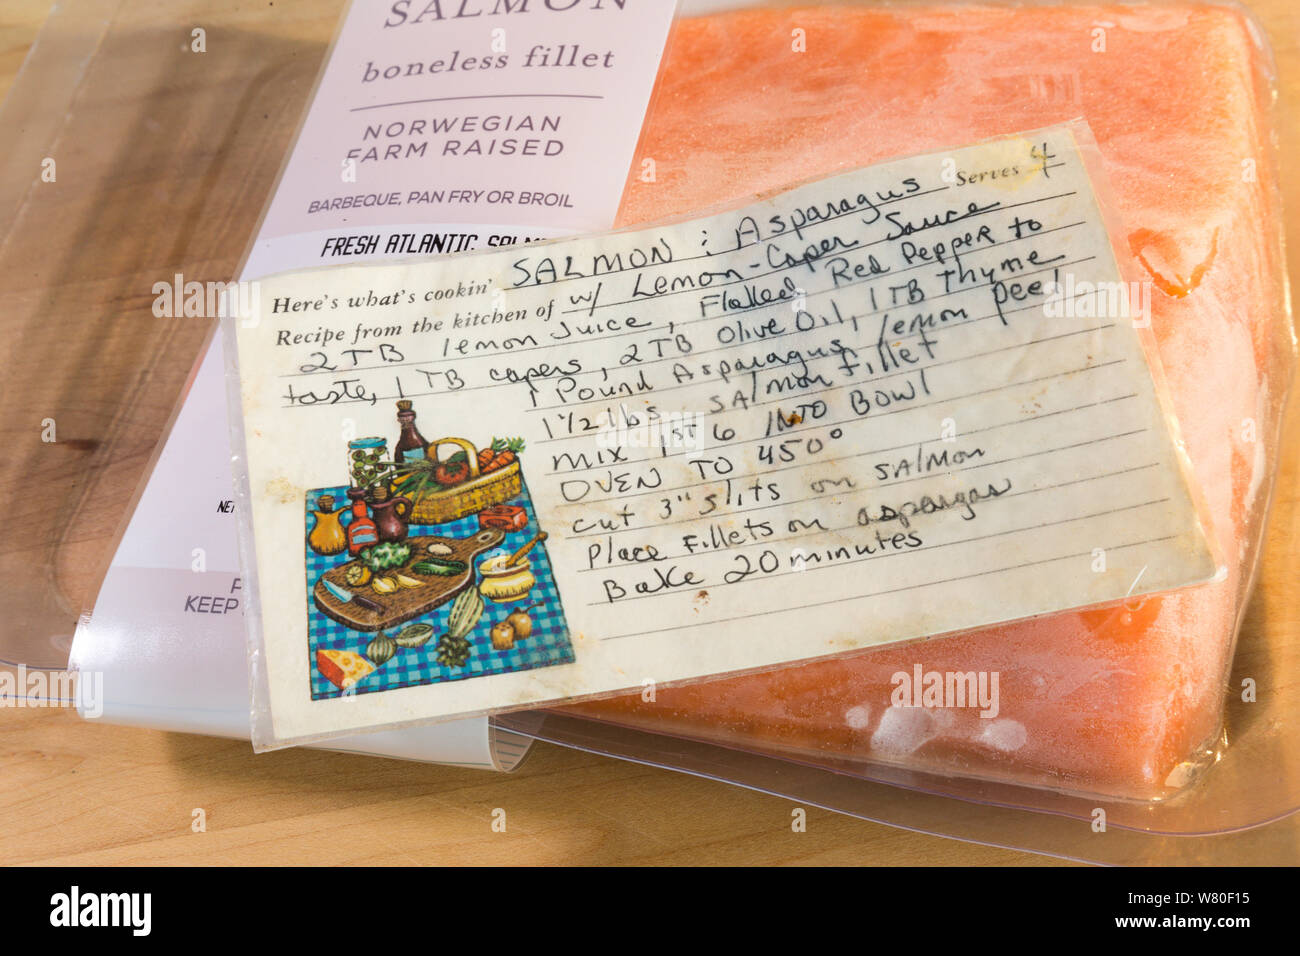 SALMON
boneless fillet
NORWEGIAN
FARM RAISED
BARBEQUE, PAN FRY OR BROIL
FRESH ATLANTIC SALM
NET
KEEP
Here's what's cookin' SALMON : Asparagus Serves 4
Recipe from the kitchen of w/ Lemon-Caper Sauce
2 TB lemon Juice, Flaked Red Pepper to
taste, 1 TB capers, 2 TB Olive Oil, 1 TB Thyme
1 Pound Asparagus, lemon peel
1 1/2 lbs SAlmon fillet
mix 1ST 6 INTO BOWL
OVEN TO 450°
cut 3" slits on SAlmon
Place Fillets on aspargas
Bake 20 minutes
alamy
Image ID: W80F15
www.alamy.com